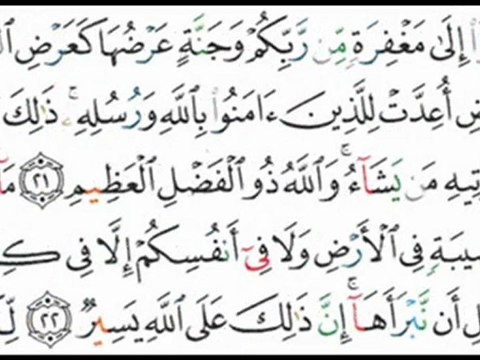 إِلَىٰ مَغْفِرَةٍ مِّن رَّبِّكُمْ وَجَنَّةٍ عَرْضُهَا كَعَرْضِ
أُعِدَّتْ لِلَّذِينَ ءَامَنُوا۟ بِٱللَّهِ وَرُسُلِهِۦ ۚ ذَٰلِكَ
مَن يَشَآءُ ۚ وَٱللَّهُ ذُو ٱلْفَضْلِ ٱلْعَظِيمِ ٢١
فِى ٱلْأَرْضِ وَلَا فِىٓ أَنفُسِكُمْ إِلَّا فِى
أَن نَّبْرَأَهَآ ۚ إِنَّ ذَٰلِكَ عَلَى ٱللَّهِ يَسِيرٌ ٢٢